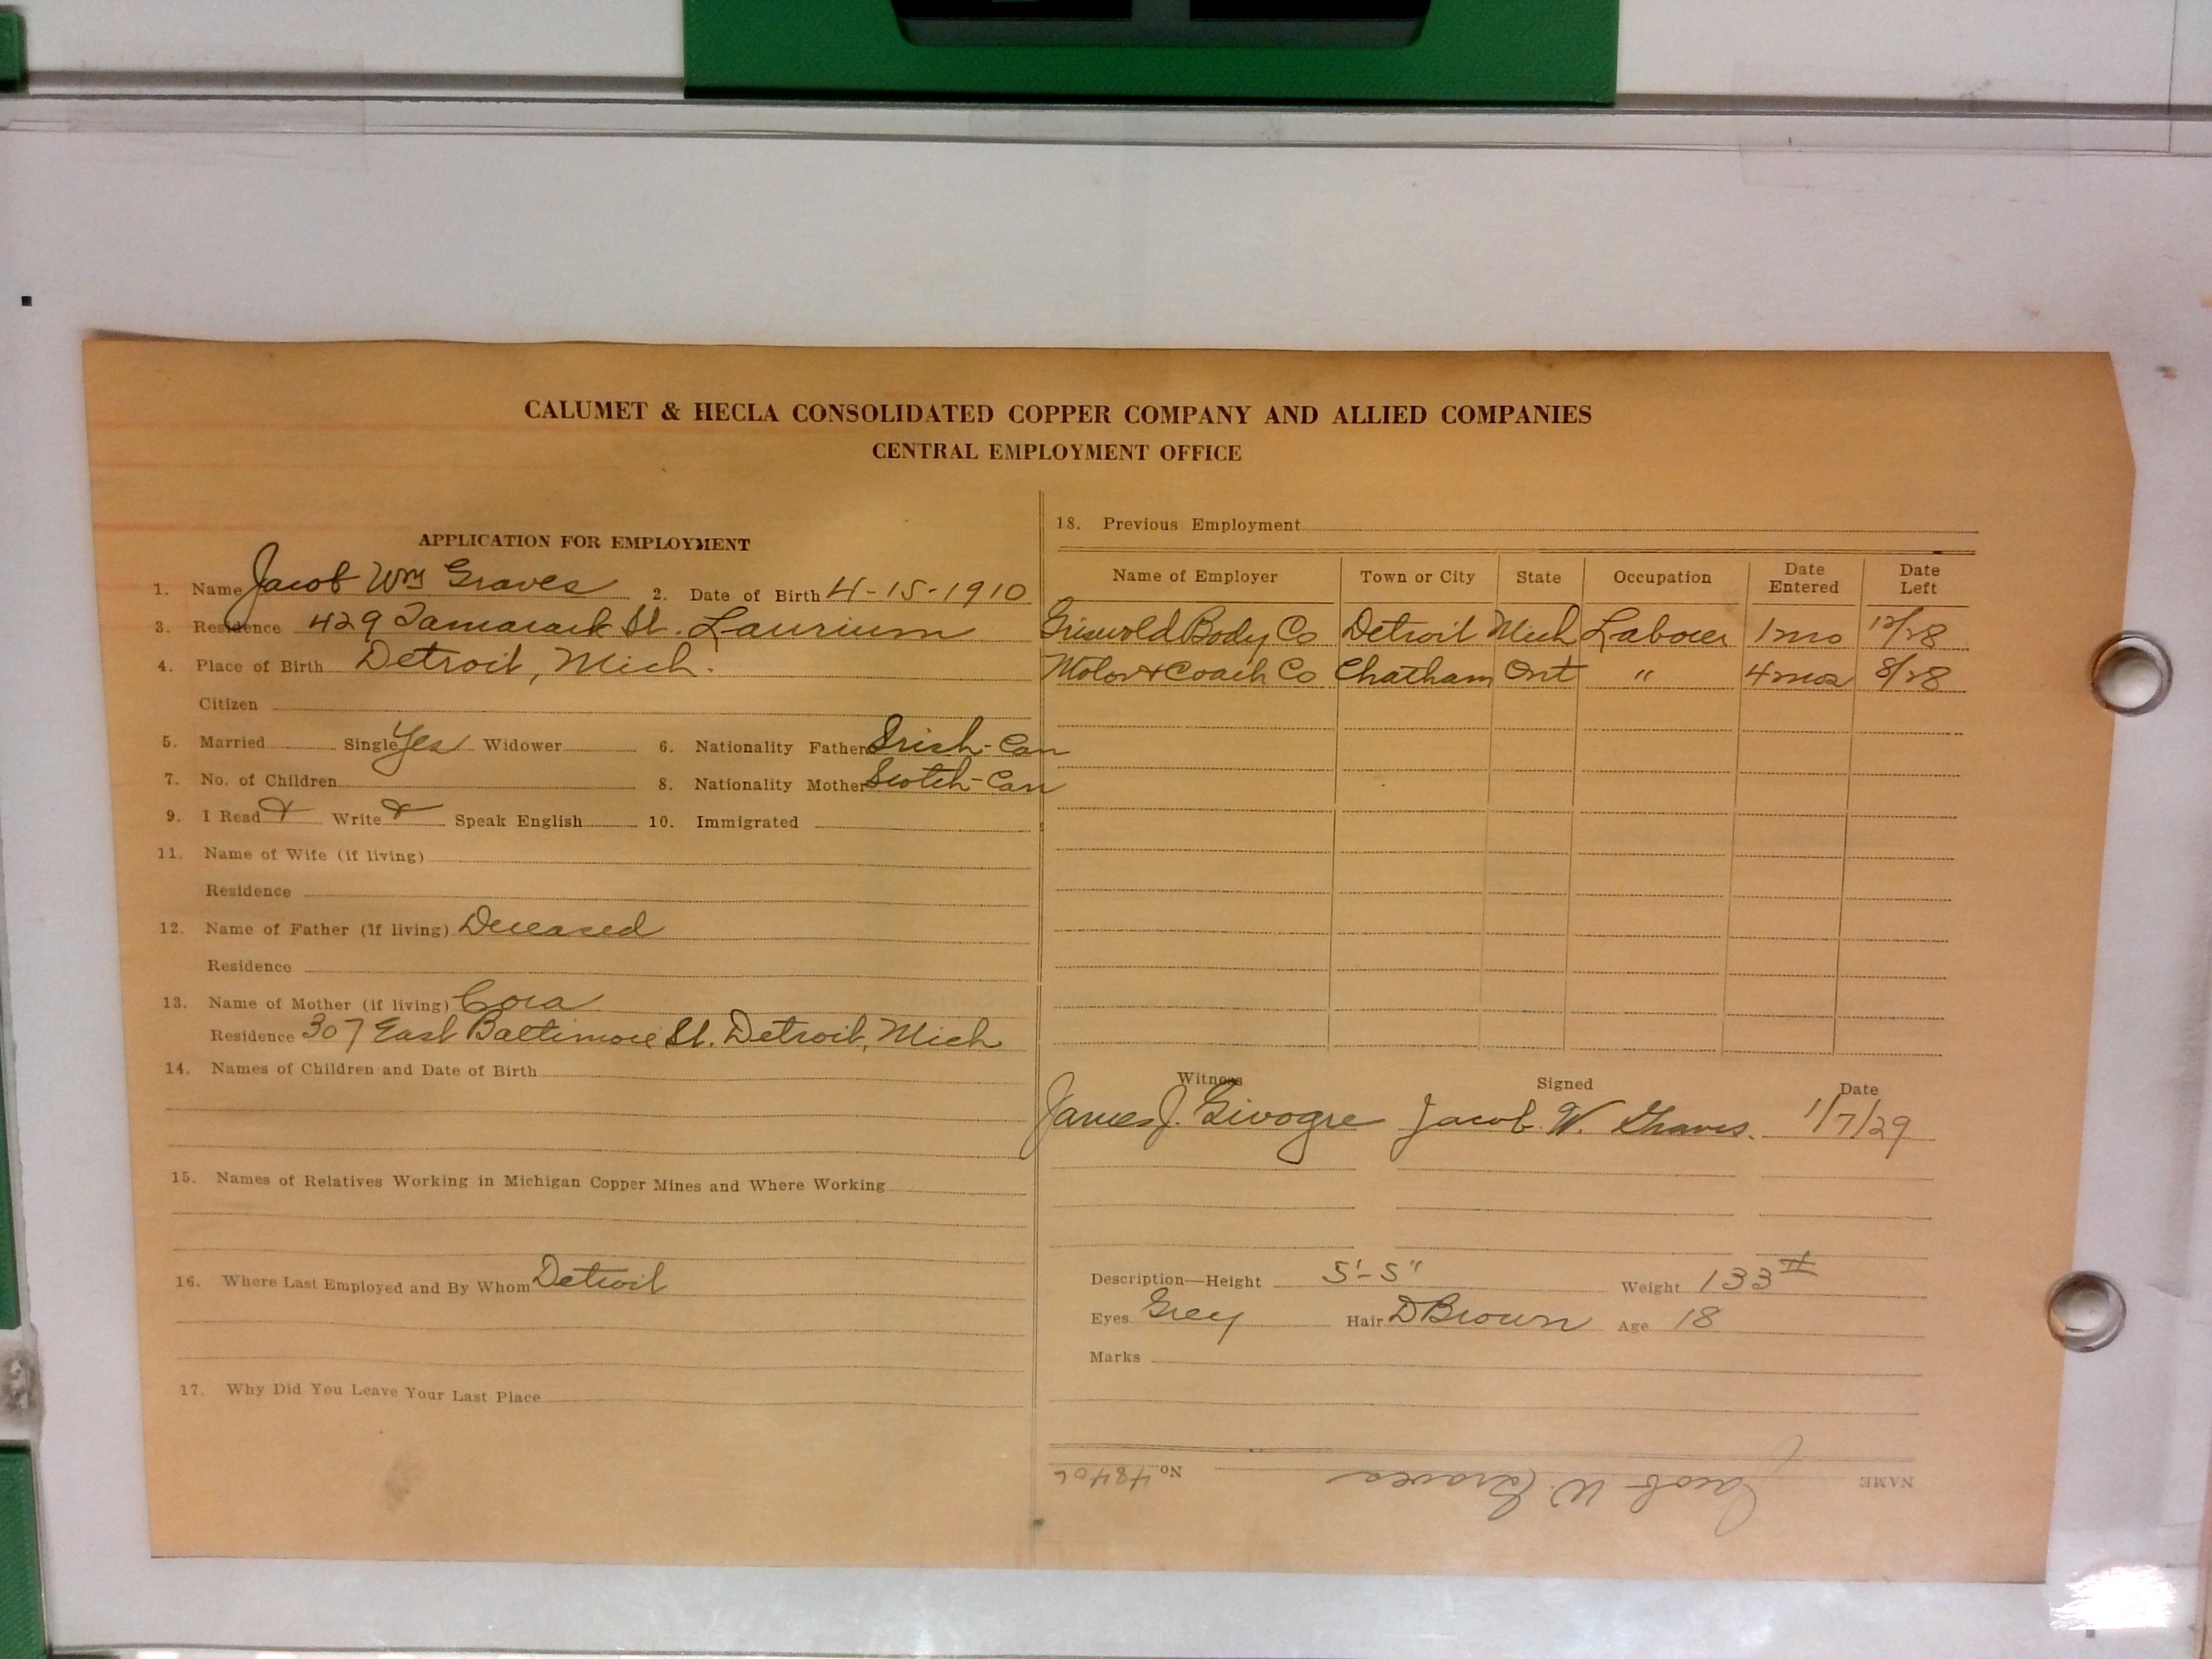 CALUMET & HECLA CONSOLIDATED COPPER COMPANY AND ALLIED COMPANIES
CENTRAL EMPLOYMENT OFFICE
APPLICATION FOR EMPLOYMENT
1. Name Jacob Wm Graves 2. Date of Birth 4-15-1910
3. Residence 429 Tamarack St. Laurium
4. Place of Birth Detroit, Mich.
Citizen
5. Married Single Yes Widower 6. Nationality Father Irish-Can
7. No. of Children 8. Nationality Mother Scotch-Can
9. I Read Write Speak English 10. Immigrated
11. Name of Wife (if living)
Residence
12. Name of Father (if living) Deceased
Residence
13. Name of Mother (if living) Cora
Residence 307 East Baltimore St. Detroit, Mich
14. Names of Children and Date of Birth
15. Names of Relatives Working in Michigan Copper Mines and Where Working
16. Where Last Employed and By Whom Detroit
17. Why Did You Leave Your Last Place
18. Previous Employment
Name of Employer Town or City State Occupation Date Entered Date Left
Griswold Body Co Detroit Mich Laborer 1 mo 12/28
Motor & Coach Co Chatham Ont " 4 mos 8/28
Witness Signed Date
James J. Givogre Jacob W. Graves. 1/7/29
Description—Height 5'-5" Weight 133#
Eyes Grey Hair D Brown Age 18
Marks
NAME Jacob W. Graves No. 48406